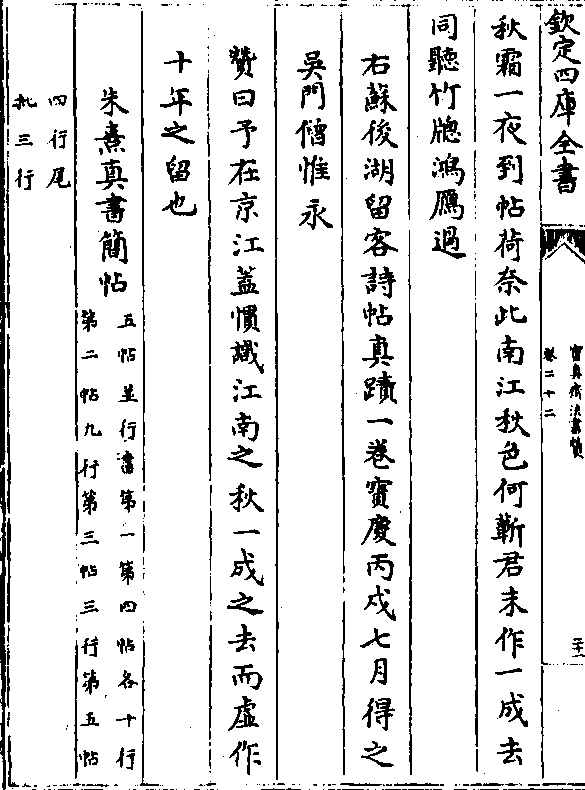 欽定四庫全書
寶真齋法書贊
卷二十二
二十一
秋霜一夜到帖荷奈此南江秋色何蘄君未作一成去
同聽竹牕鴻鴈過
右蘇後湖留客詩帖真蹟一卷寶慶丙戌七月得之
吳門僧惟永
贊曰予在京江蓋慣識江南之秋一成之去而虛作
十年之留也
朱熹真書簡帖
五帖並行書第一第四帖各十行
第二帖九行第三帖三行第五帖
四行尾
批三行